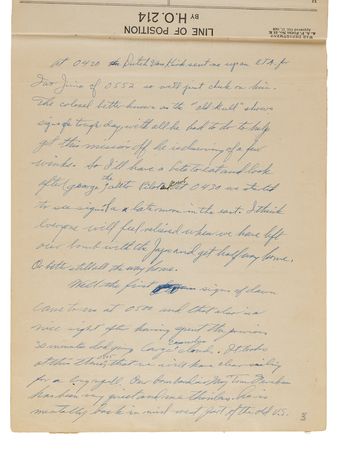 WAR DEPARTMENT
LINE OF POSITION
BY H.O. 214
At 0420 Dutch Van Kirk sent us up an ETA for
Iwo Jima of 0552 so we'll just check on him.
The colonel better known as the "old Bull" shows
signs of a tough day, with all he had to do to help
get this mission off he is deserving of a few
winks. So I'll have a bite to eat and look
after "George" the auto Pilot. At 0430 we started
to see signs of a late moon in the east. I think
everyone will feel relieved when we have left
our bomb with the Japs and get half way home.
Or better still all the way home.
Well the first signs of dawn
came to us at 0500 and that also is a
nice sight after having spent the previous
30 minutes dodging large cumulus clouds. It looks
at this time that we will have clear sailing
for a long spell. Our bombardier Maj Tom Ferebee
has been very quiet and me thinks he is
mentally back in mid west part of the old U.S.
3